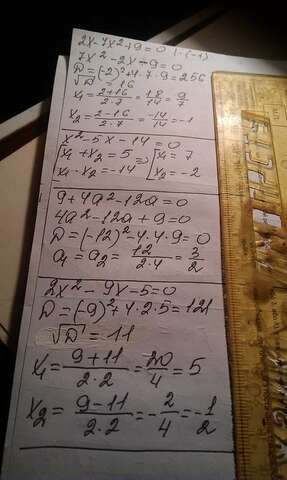 2x-7x²+9=0 |·(-1)
7x²-2x-9=0
D=(-2)²+4·7·9=256
√D=16
x₁=(2+16)/(2·7)=18/14=9/7
x₂=(2-16)/(2·7)=-14/14=-1
x²-5x-14=0
x₁+x₂=5 => x₁=7
x₁·x₂=-14 x₂=-2
9+4a²-12a=0
4a²-12a+9=0
D=(-12)²-4·4·9=0
a₁=a₂=12/(2·4)=3/2
2x²-9x-5=0
D=(-9)²+4·2·5=121
√D=11
x₁=(9+11)/(2·2)=20/4=5
x₂=(9-11)/(2·2)=-2/4=-1/2